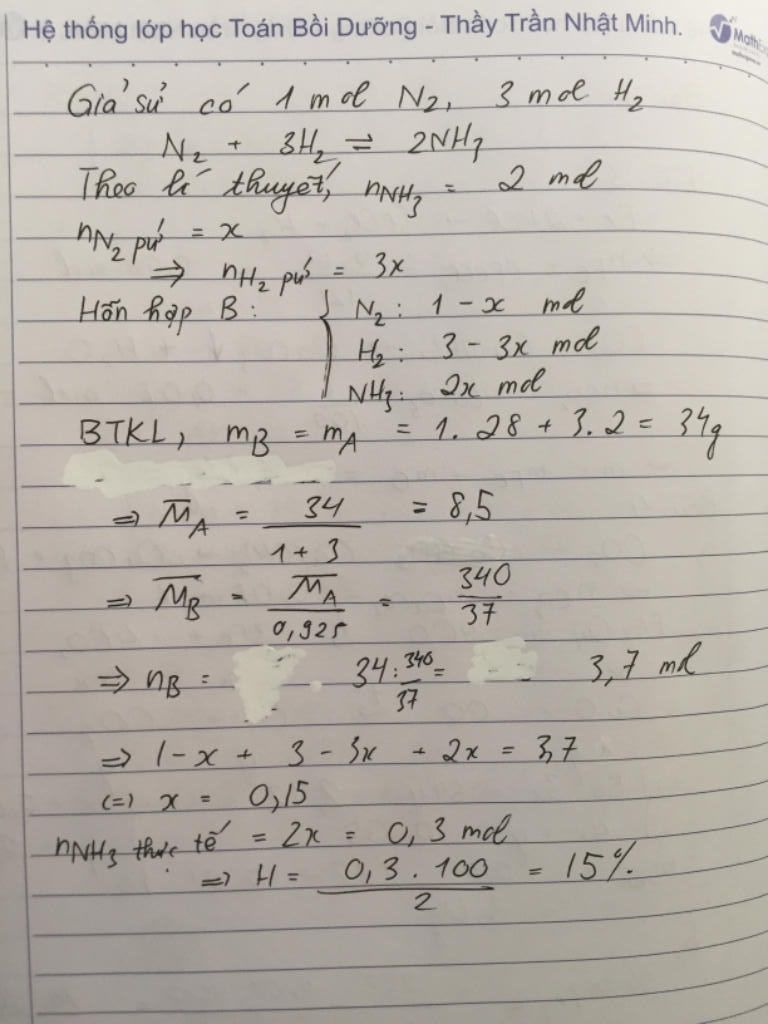 Hệ thống lớp học Toán Bồi Dưỡng - Thầy Trần Nhật Minh.
Giả sử có 1 mol N₂, 3 mol H₂
N₂ + 3H₂ ⇌ 2NH₃
Theo lí thuyết, nNH₃ = 2 mol
nN₂ pứ = x
⇒ nH₂ pứ = 3x
Hỗn hợp B: { N₂: 1 - x mol
H₂: 3 - 3x mol
NH₃: 2x mol
BTKL, mB = mA = 1.28 + 3.2 = 34g
⇒ M̅A = 34/(1+3) = 8,5
⇒ M̅B = M̅A/0,925 = 340/37
⇒ nB = 34 : 340/37 = 3,7 mol
⇒ 1-x + 3 - 3x + 2x = 3,7
(=) x = 0,15
nNH₃ thực tế = 2x = 0,3 mol
⇒ H = (0,3 . 100)/2 = 15%